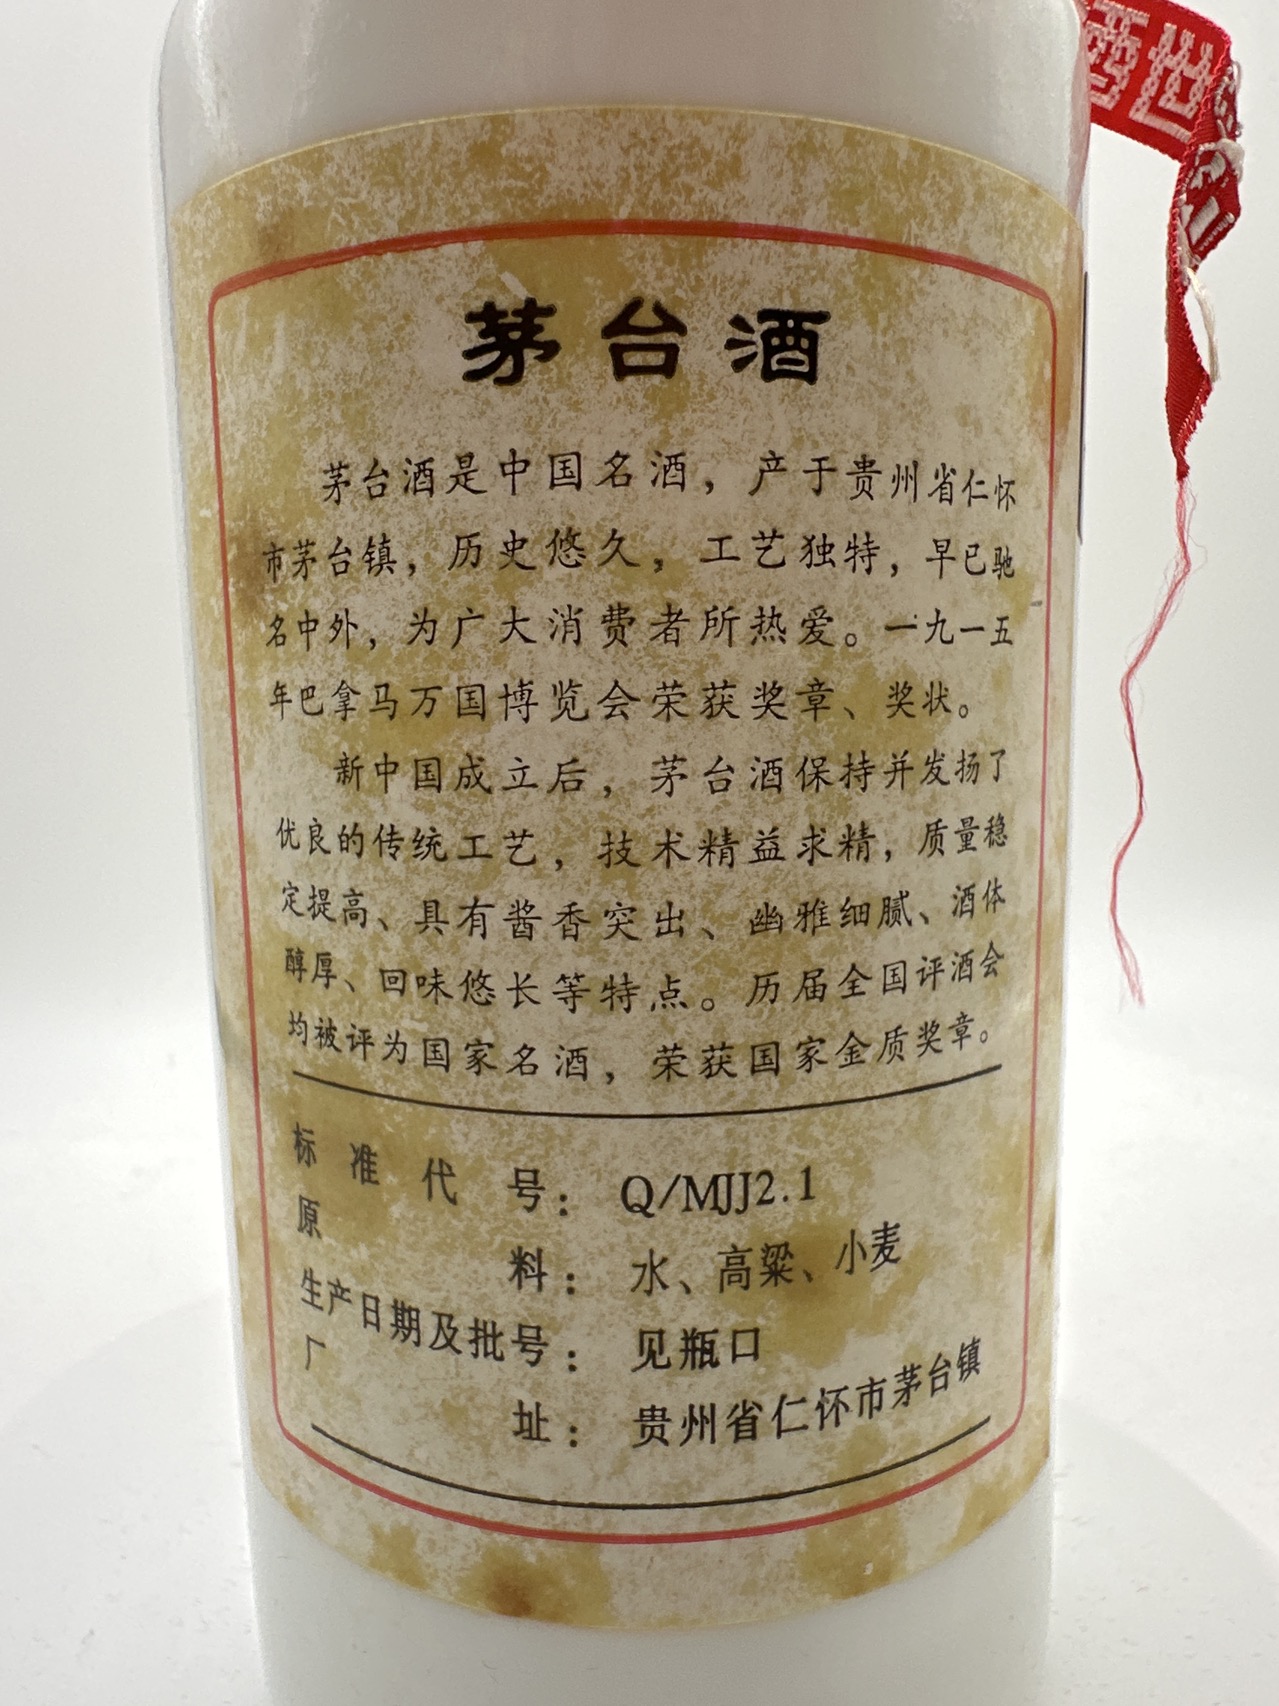 酒世
茅台酒
茅台酒是中国名酒，产于贵州省仁怀
市茅台镇，历史悠久，工艺独特，早已驰
名中外，为广大消费者所热爱。一九一五
年巴拿马万国博览会荣获奖章、奖状。
新中国成立后，茅台酒保持并发扬了
优良的传统工艺，技术精益求精，质量稳
定提高、具有酱香突出、幽雅细腻、酒体
醇厚、回味悠长等特点。历届全国评酒会
均被评为国家名酒，荣获国家金质奖章。
标准代号： Q/MJJ2.1
原料： 水、高粱、小麦
生产日期及批号： 见瓶口
厂址： 贵州省仁怀市茅台镇